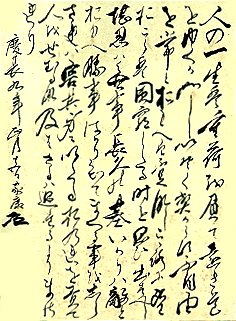 人の一生は重荷を負て遠き道
をゆくかことしいそくへからす不自由
を常とおもへは不足なしこゝろに望
おこらは困窮したる時を思ひ出すへし
堪忍は無事長久の基いかりは敵と
おもへ勝事はかり知てまくる事をしら
されは害其身にいたるおのれを責て
人をせむるな及はさるは過たるよりまさ
れり
慶長九年正月十五日 家康